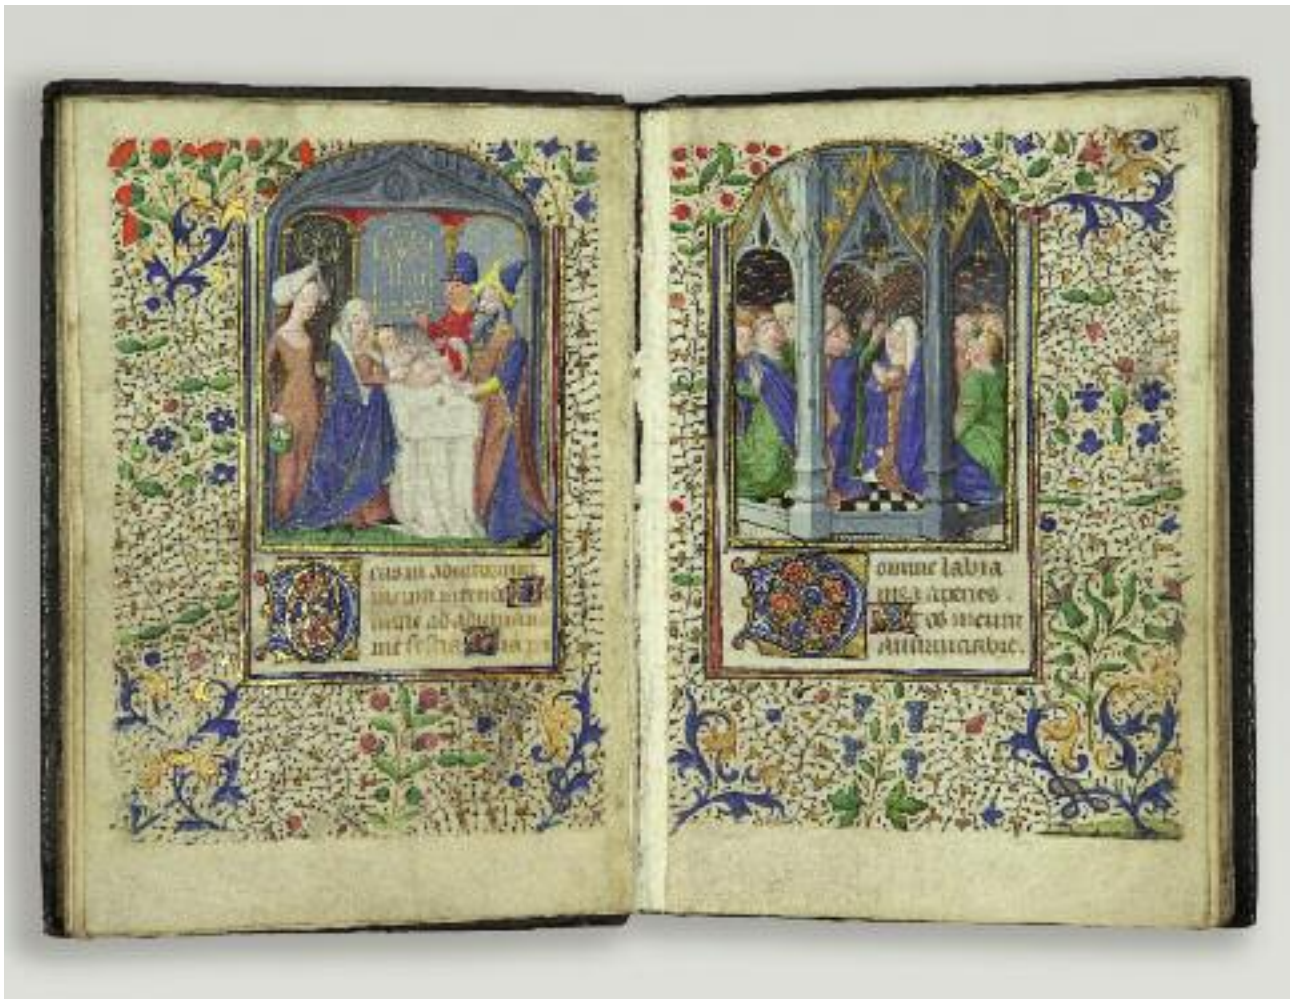 eus in adiutorium
meum intende
domine ad adiuvan
me festina
omine labia
mea aperies .
Et os meum
annunciabit .